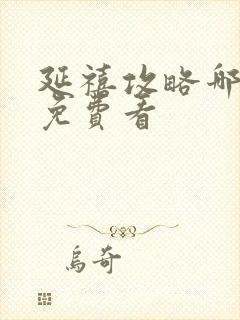 延禧攻略哪
免費看
烏奇